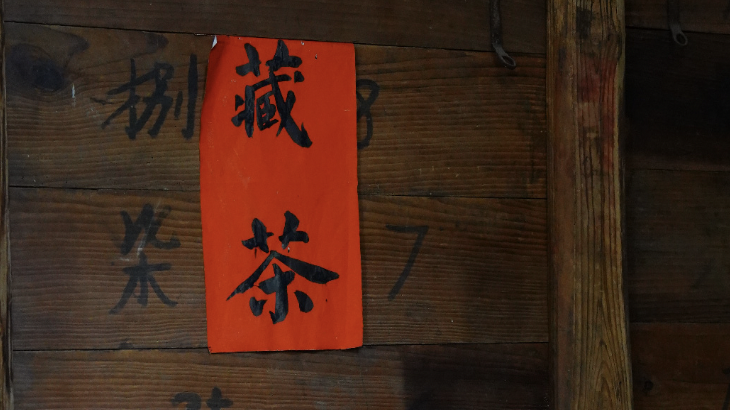 藏茶
捌 8
柒 7